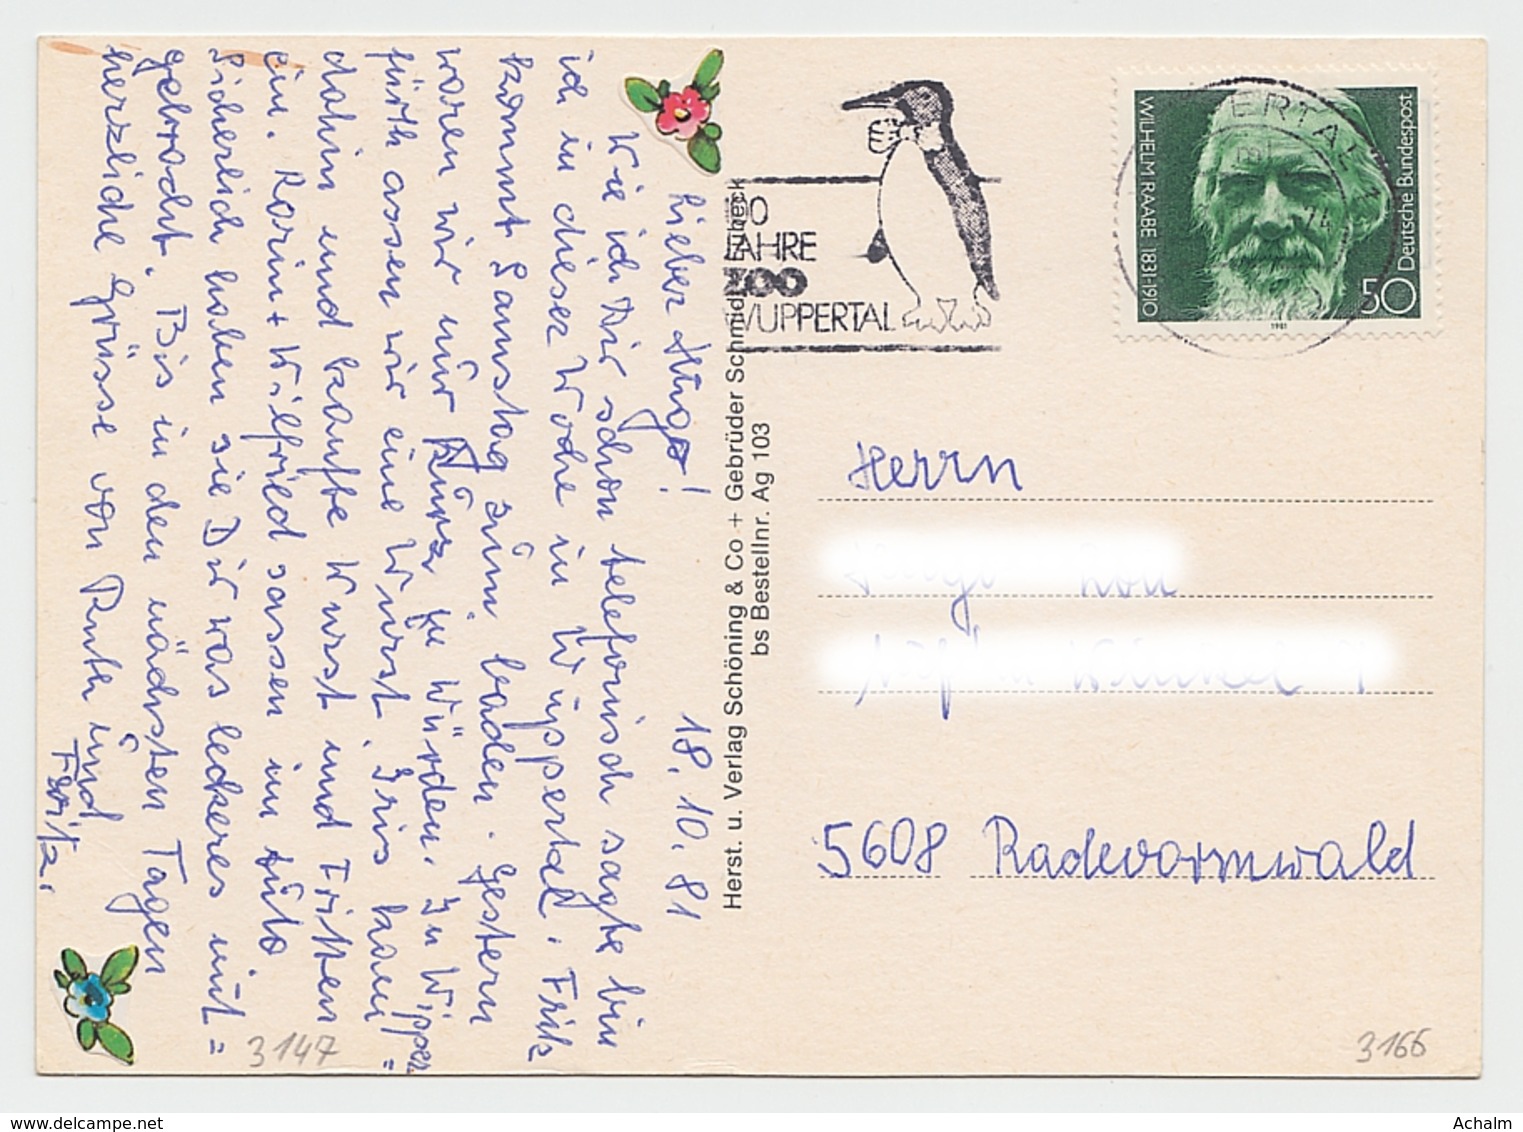 18. 10. 81
Lieber Hugo!
Wie ich Dir schon telefonisch sagte bin
ich in dieser Woche in Wuppertal. Fritz
kommt Samstag zum baden. Gestern
waren wir nur kurz in Würden. In Wipper=
fürth assen wir eine Wurst. Iris kam
dahin und kaufte Wurst und Fritten
ein. Karin + Wilfried sassen im Auto.
Sicherlich haben sie Dir was leckeres mit=
gebracht. Bis in den nächsten Tagen
herzliche Grüsse von Ruth und
Fritz.
3147
Herst. u. Verlag Schöning & Co + Gebrüder Schmidt, Lübeck
bs Bestellnr. Ag 103
00
JAHRE
ZOO
WUPPERTAL
WUPPERTAL 1
WILHELM RAABE 1831-1910
Deutsche Bundespost
50
1981
Herrn
5608 Radevormwald
3166
Achalm